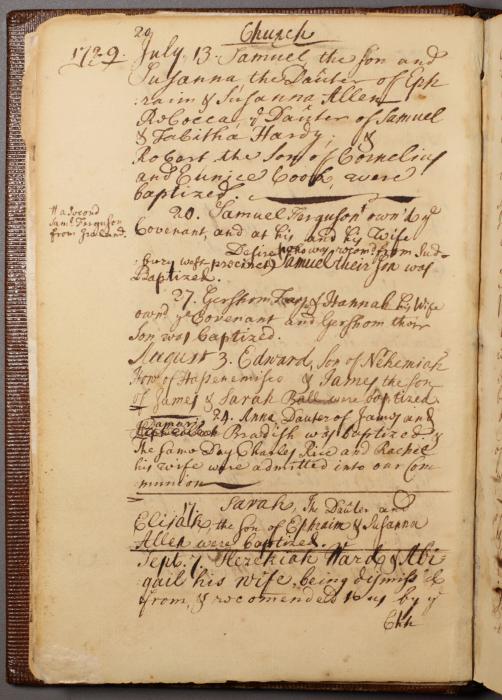 20 Church
1729 July. 13. Samuel the son and
Suzanna the Dauter of Eph
raim & Susanna Allen
Rebecca, ye Dauter of Samuel
& Tabitha Hardy; &
Robart the Son of Cornelius
and Eunice Cook, were
baptized.
20. Samuel Ferguson own'd ye
Sam.l Ferguson
from Ireland.
Covenant, and at his and his Wife
Desire, who was recom.d from Sud-
bury west precinct Samuel their son was
Baptized.
27. Gershom & Hannah his Wife
own'd ye Covenant and Gershom their
son was baptized.
August 3. Edward, Son of Nehemiah
How of Hassenemisco & James the son
of James & Sarah Ball were baptized
Damaris 24. Anna Dauter of James and
Bradish was baptized. &
the same Day Charles Rice and Rachel
his wife were admitted into our Com
munion
17 Sarah, The Dauter and
Elijah the son of Ephraim & Susanna
Allen were baptized.
Sept. 7 Hezekiah Ward & Abi
gail his wife being dismiss'd
from & recomended to us by ye
Chh